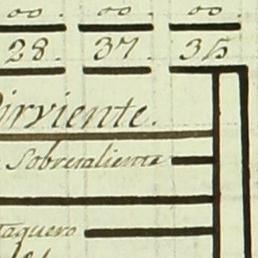 oo. oo. oo.
28. 37. 35
irviente.
Sobresaliente
taquero